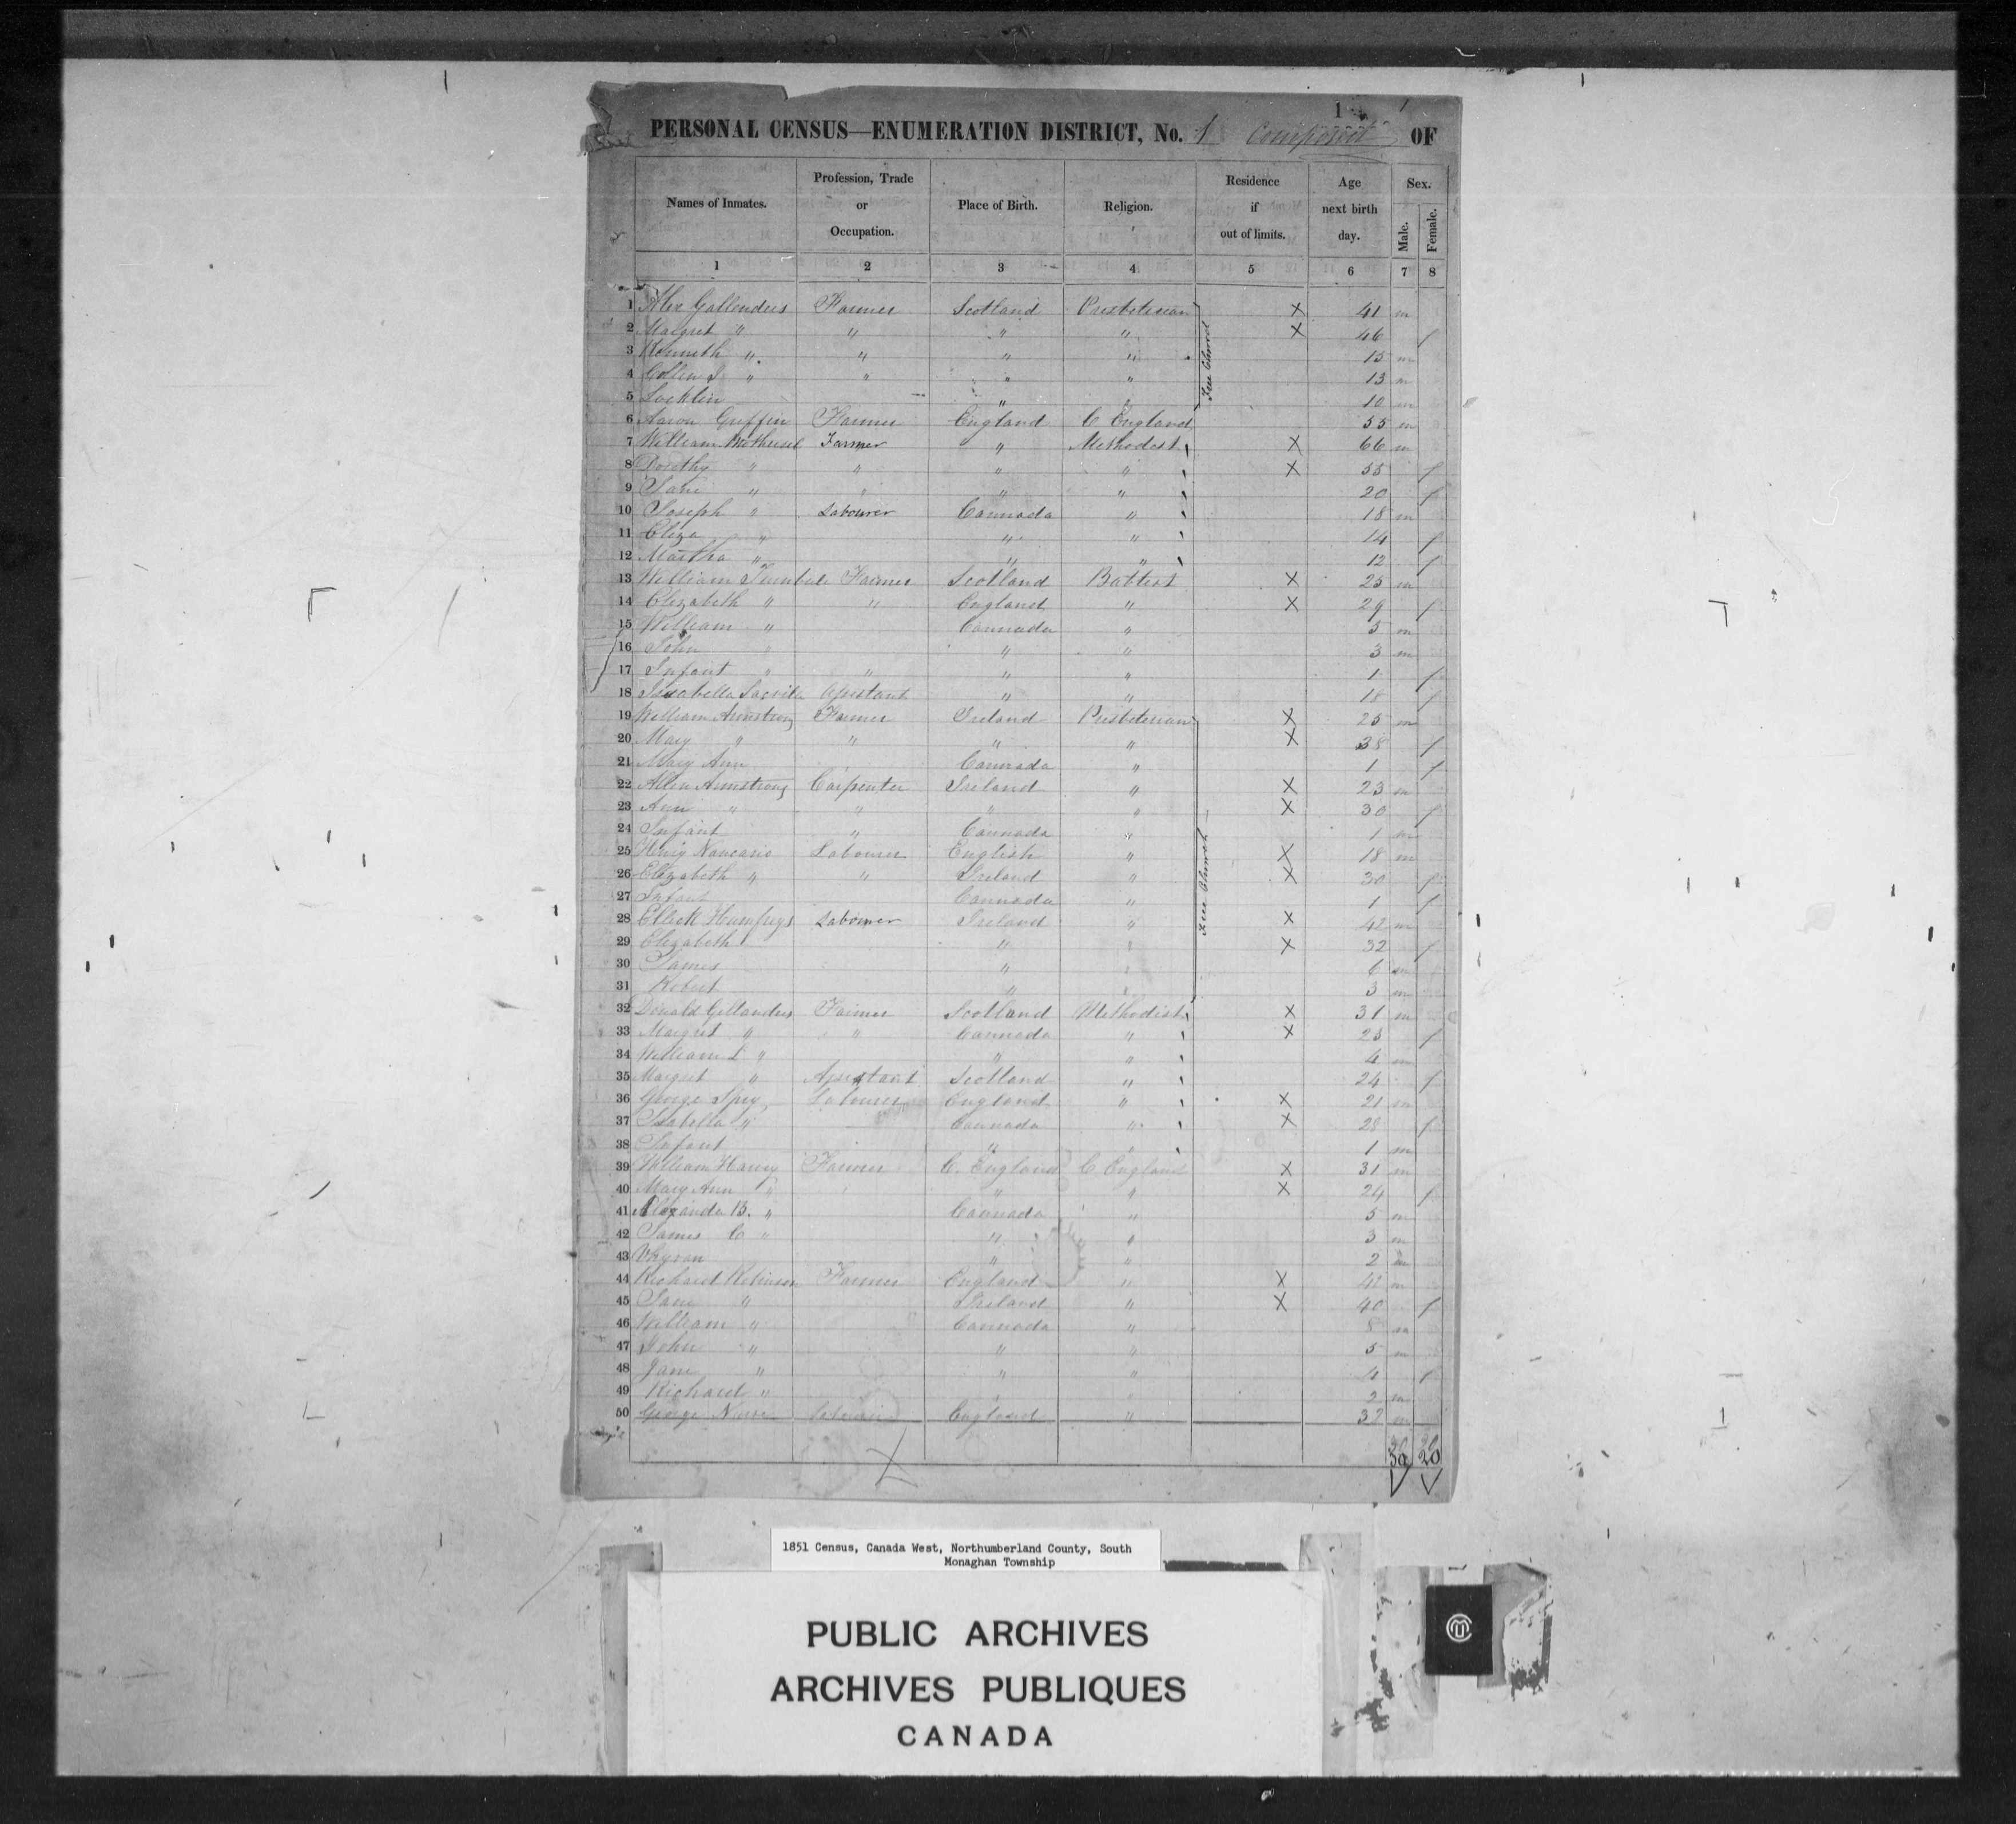 1
PERSONAL CENSUS—ENUMERATION DISTRICT, No. 1 OF
Names of Inmates. Profession, Trade or Occupation. Place of Birth. Religion. Residence if out of limits. Age next birth day. Sex. Male. Female.
1 2 3 4 5 6 7 8
1 Gallenders Farmer Scotland Presbeterian X 41 m
2 Margret " " " " X 46 f
3 Kenneth " " " " 15 m
4 " " " " 13 m
5 Locklin " " 10 m
Free Church
6 Aaron Griffin Farmer England C England 55 m
7 William Farmer " Methodist X 66 m
8 Dorothy " " " " X 55 f
9 Jane " " " " 20 f
10 Joseph " Labourer Cannada " 18 m
11 Eliza " " " 14 f
12 Martha " " " 12 f
13 William Farmer Scotland Babtist X 25 m
14 Elizabeth " " England " X 29 f
15 William " Cannada " 5 m
16 John " " " 3 m
17 Infant " " " " 1 f
18 Issabella Assistant " " 18 f
19 William Armstrong Farmer Ireland Presbeterian X 25 m
20 Mary " " " " X 38 f
21 Mary Ann Cannada " 1 f
22 Allen Armstrong Carpenter Ireland " X 23 m
23 Ann " " " " X 30 f
24 Infant " Cannada " 1 m
25 Labourer English " X 18 m
26 Elizabeth " " Ireland " X 30 f
27 Infant Cannada " 1 f
28 Elliott Humfreys Labourer Ireland " X 42 m
29 Elizabeth " " X 32 f
30 James " " 6 m
31 Robert " " 3 m
Free Church
32 Donald Gellanders Farmer Scotland Methodist X 31 m
33 Margret " " Cannada " X 25 f
34 William " " " 4 m
35 Margret " Assistant Scotland " 24 f
36 George Labourer England " X 21 m
37 Isabella " Cannada " X 28 f
38 Infant " " 1 m
39 William Harvy Farmer C. England C England X 31 m
40 Mary Ann " " " X 24 f
41 Alexander B. " Cannada " 5 m
42 James C " " " 3 m
43 " " 2 m
44 Richard Robinson Farmer England " X 42 m
45 Jane " Ireland " X 40 f
46 William " Cannada " 8 m
47 John " " " 5 m
48 Jane " " " 4 f
49 Richard " 2 m
50 George Labourer England " 32 m
30 20
1851 Census, Canada West, Northumberland County, South
Monaghan Township
PUBLIC ARCHIVES
ARCHIVES PUBLIQUES
CANADA